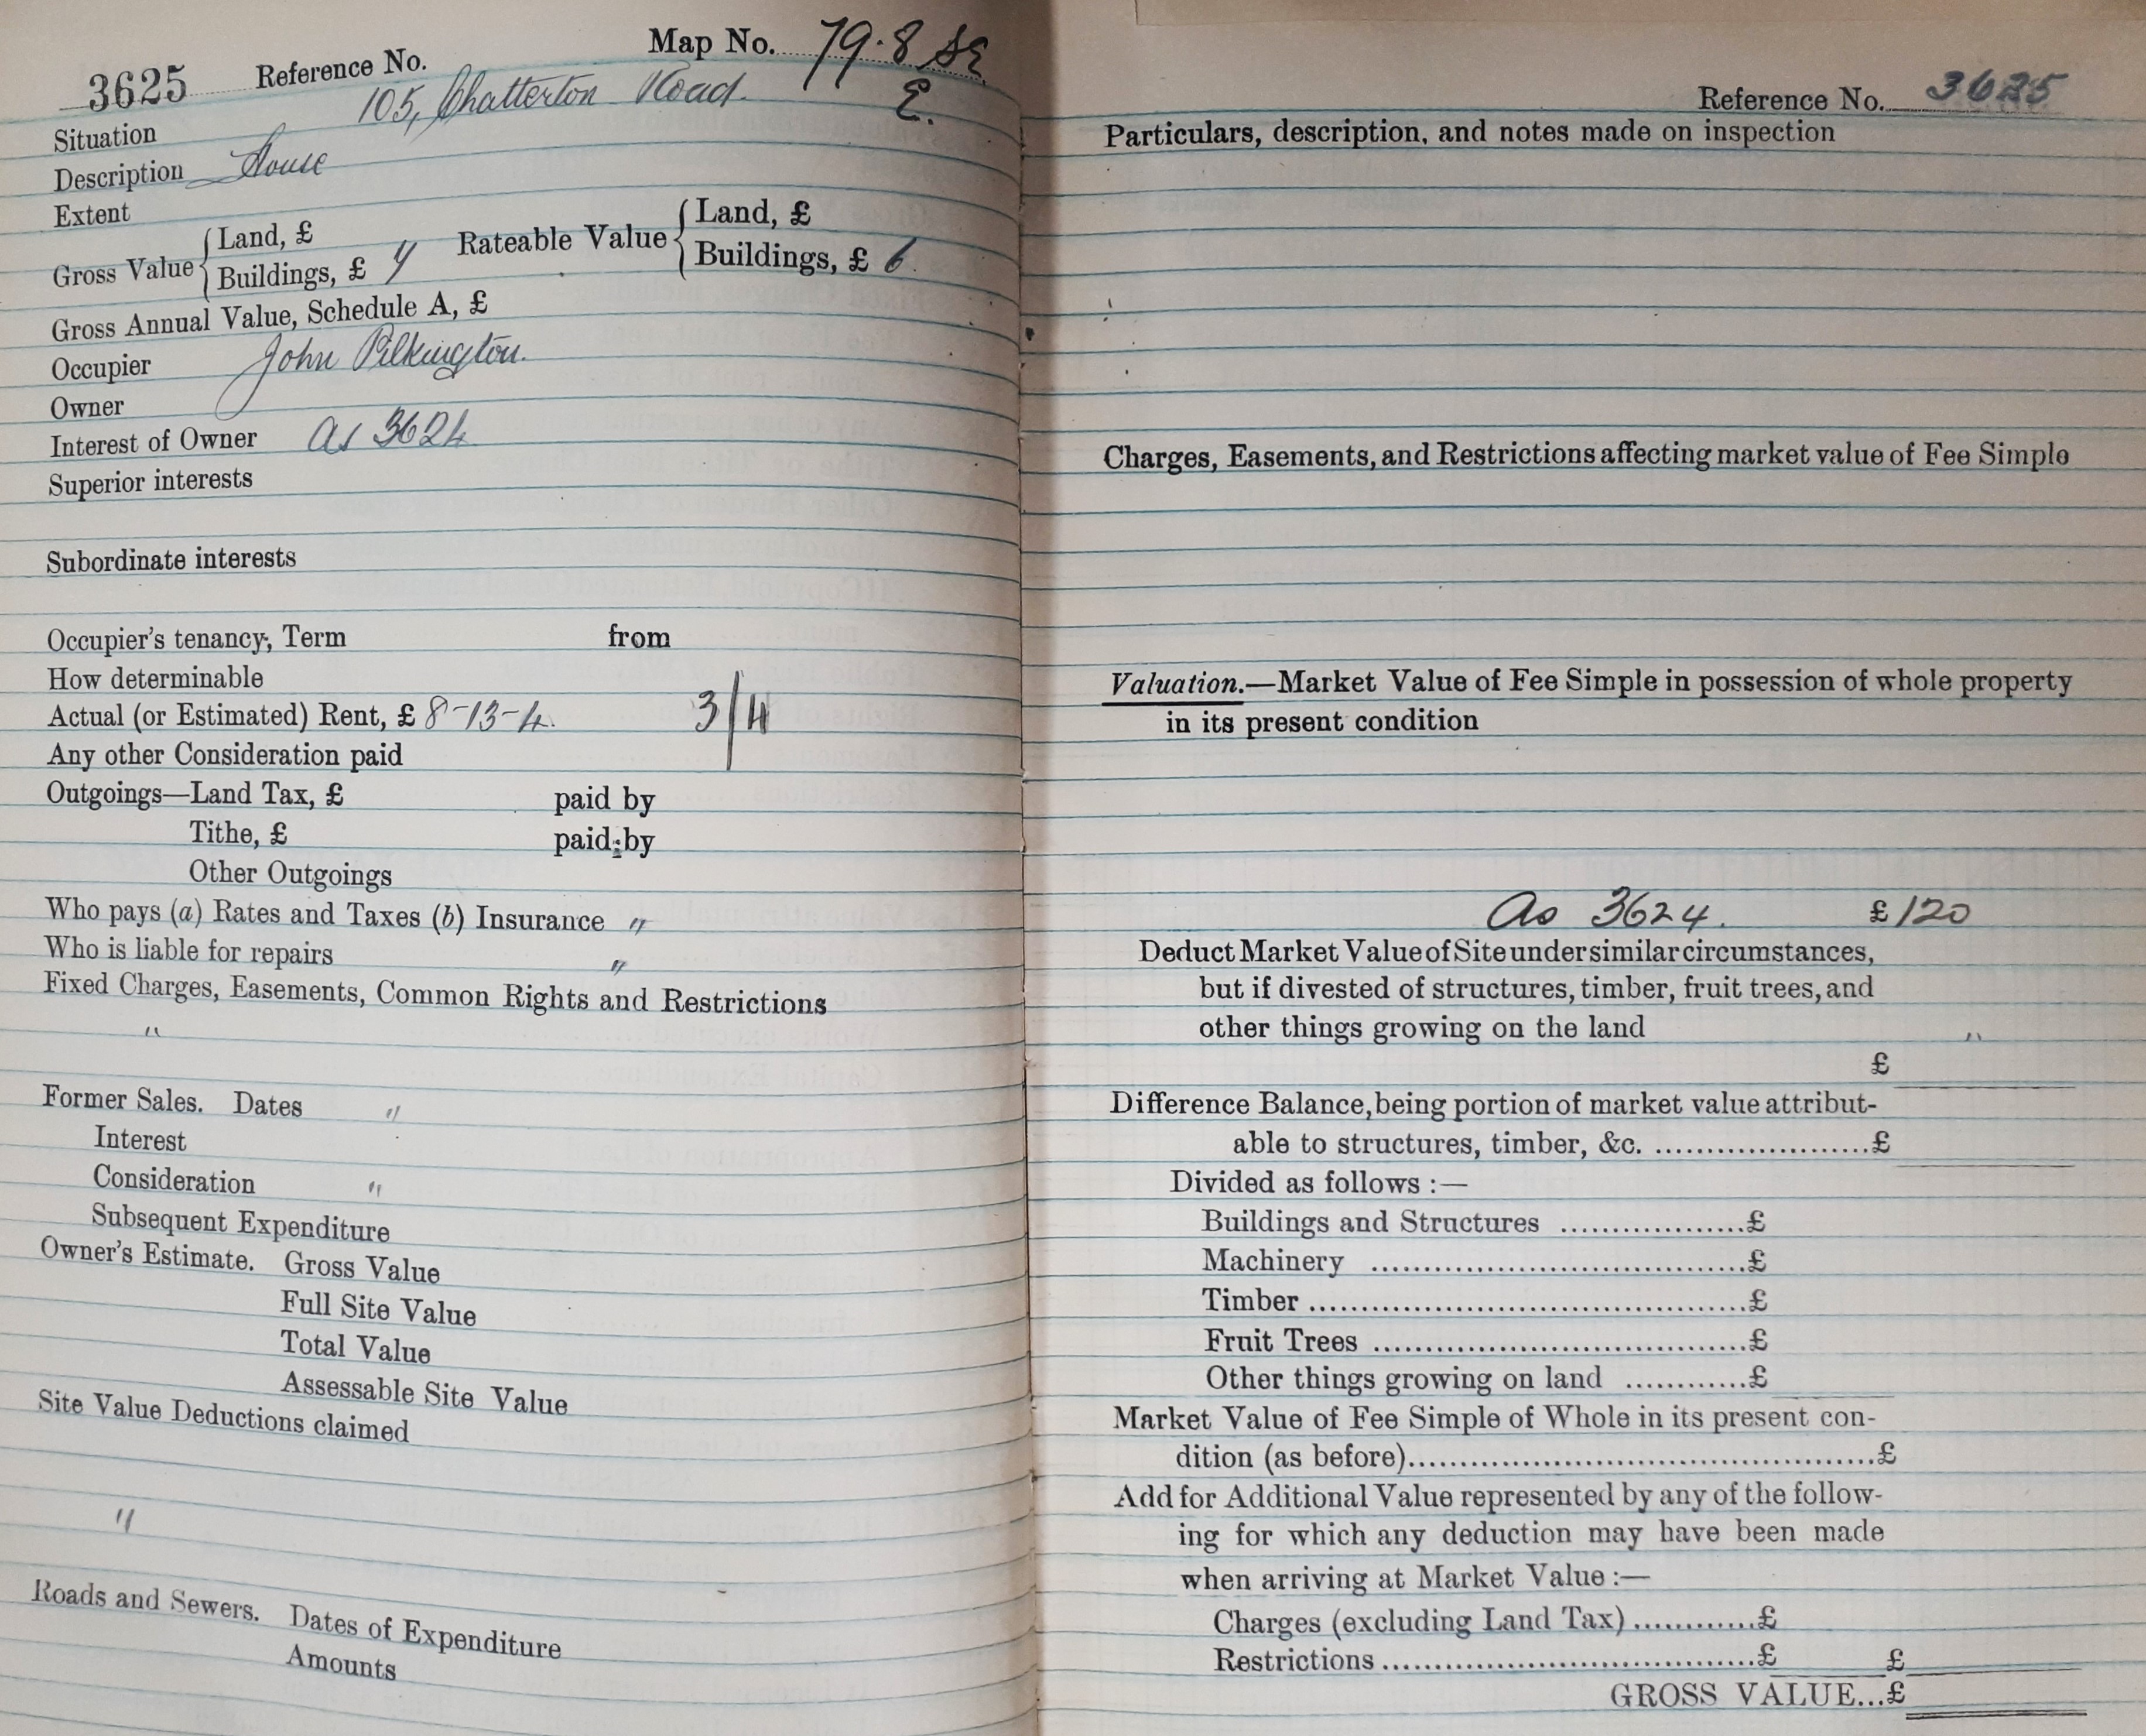 Map No. 79.8 SE
3625 Reference No. E.
Situation 105, Chatterton Road.
Description House
Extent
Gross Value { Land, £
Buildings, £ 7
Rateable Value { Land, £
Buildings, £ 6.
Gross Annual Value, Schedule A, £
Occupier John Pilkington.
Owner
Interest of Owner as 3624
Superior interests
Subordinate interests
Occupier's tenancy, Term from
How determinable
Actual (or Estimated) Rent, £ 8-13-4. 3/4
Any other Consideration paid
Outgoings—Land Tax, £ paid by
Tithe, £ paid by
Other Outgoings
Who pays (a) Rates and Taxes (b) Insurance "
Who is liable for repairs "
Fixed Charges, Easements, Common Rights and Restrictions
"
Former Sales. Dates "
Interest
Consideration "
Subsequent Expenditure
Owner's Estimate. Gross Value
Full Site Value
Total Value
Assessable Site Value
Site Value Deductions claimed
"
Roads and Sewers. Dates of Expenditure
Amounts
Reference No. 3625
Particulars, description, and notes made on inspection
Charges, Easements, and Restrictions affecting market value of Fee Simple
Valuation.—Market Value of Fee Simple in possession of whole property
in its present condition
As 3624. £120
Deduct Market Value of Site under similar circumstances,
but if divested of structures, timber, fruit trees, and
other things growing on the land "
£
Difference Balance, being portion of market value attribut-
able to structures, timber, &c. .....................£
Divided as follows :—
Buildings and Structures ..................£
Machinery ....................................£
Timber ..........................................£
Fruit Trees ....................................£
Other things growing on land ............£
Market Value of Fee Simple of Whole in its present con-
dition (as before)..............................................£
Add for Additional Value represented by any of the follow-
ing for which any deduction may have been made
when arriving at Market Value :—
Charges (excluding Land Tax) ............£
Restrictions ....................................£ £
GROSS VALUE...£